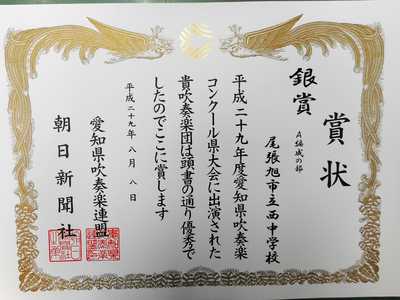 賞状
銀賞
A編成の部
尾張旭市立西中学校
平成二十九年度愛知県吹奏楽
コンクール県大会に出演された
貴吹奏楽団は頭書の通り優秀で
したのでここに賞します
平成二十九年八月八日
愛知県吹奏楽連盟
朝日新聞社